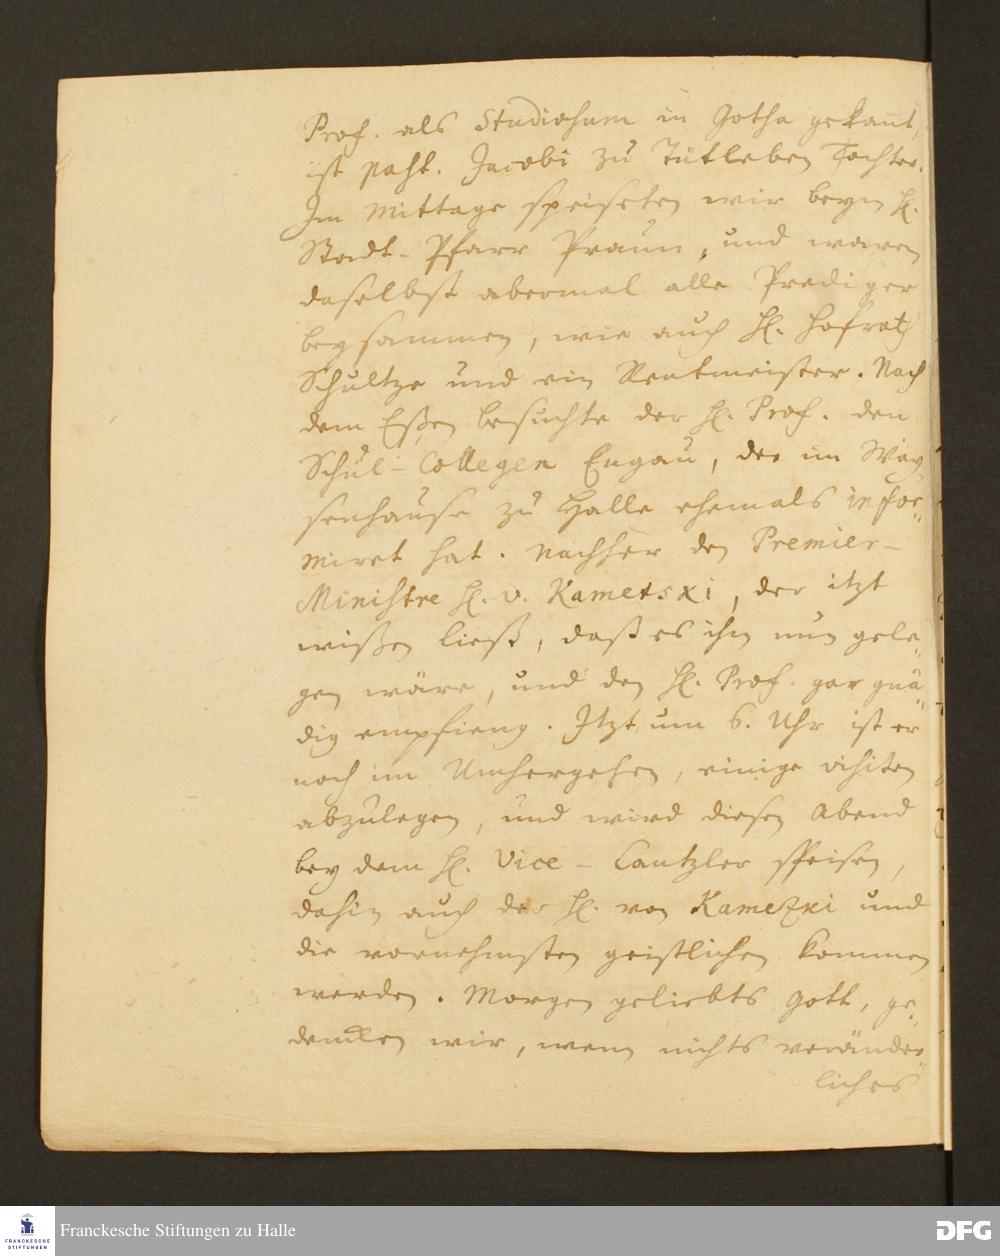 Prof. als Studiosum in Gotha gekannt,
ist Past. Jacobi zu Tütleben Tochter.
Im Mittage speiseten wir beym H.
Stadt-Pfarr Praun, und waren
daselbst abermal alle Prediger
beysammen, wie auch H. Hofrath
Schultze und ein Rentmeister. Nach
dem Eßen besuchte der H. Prof. den
Schul-Collegen Engau, der im Way
senhause zu Halle ehemals infor-
miret hat. Nachher den Premier-
Ministre H. v. Kametski, der itzt
wißen ließ, daß es ihm nun gele-
gen wäre, und den H. Prof. gar gnä-
dig empfieng. Itzt um 6. Uhr ist er
noch im Umhergehen, einige visiten
abzulegen, und wird diesen Abend
bey dem H. Vice-Cantzler speisen,
dahin auch der H. von Kamezki und
die vornehmsten geistlichen kommen
werden. Morgen geliebts Gott, ge-
dencken wir, wenn nichts veränder-
liches
Franckesche Stiftungen zu Halle
FRANCKESCHE
STIFTUNGEN
DFG